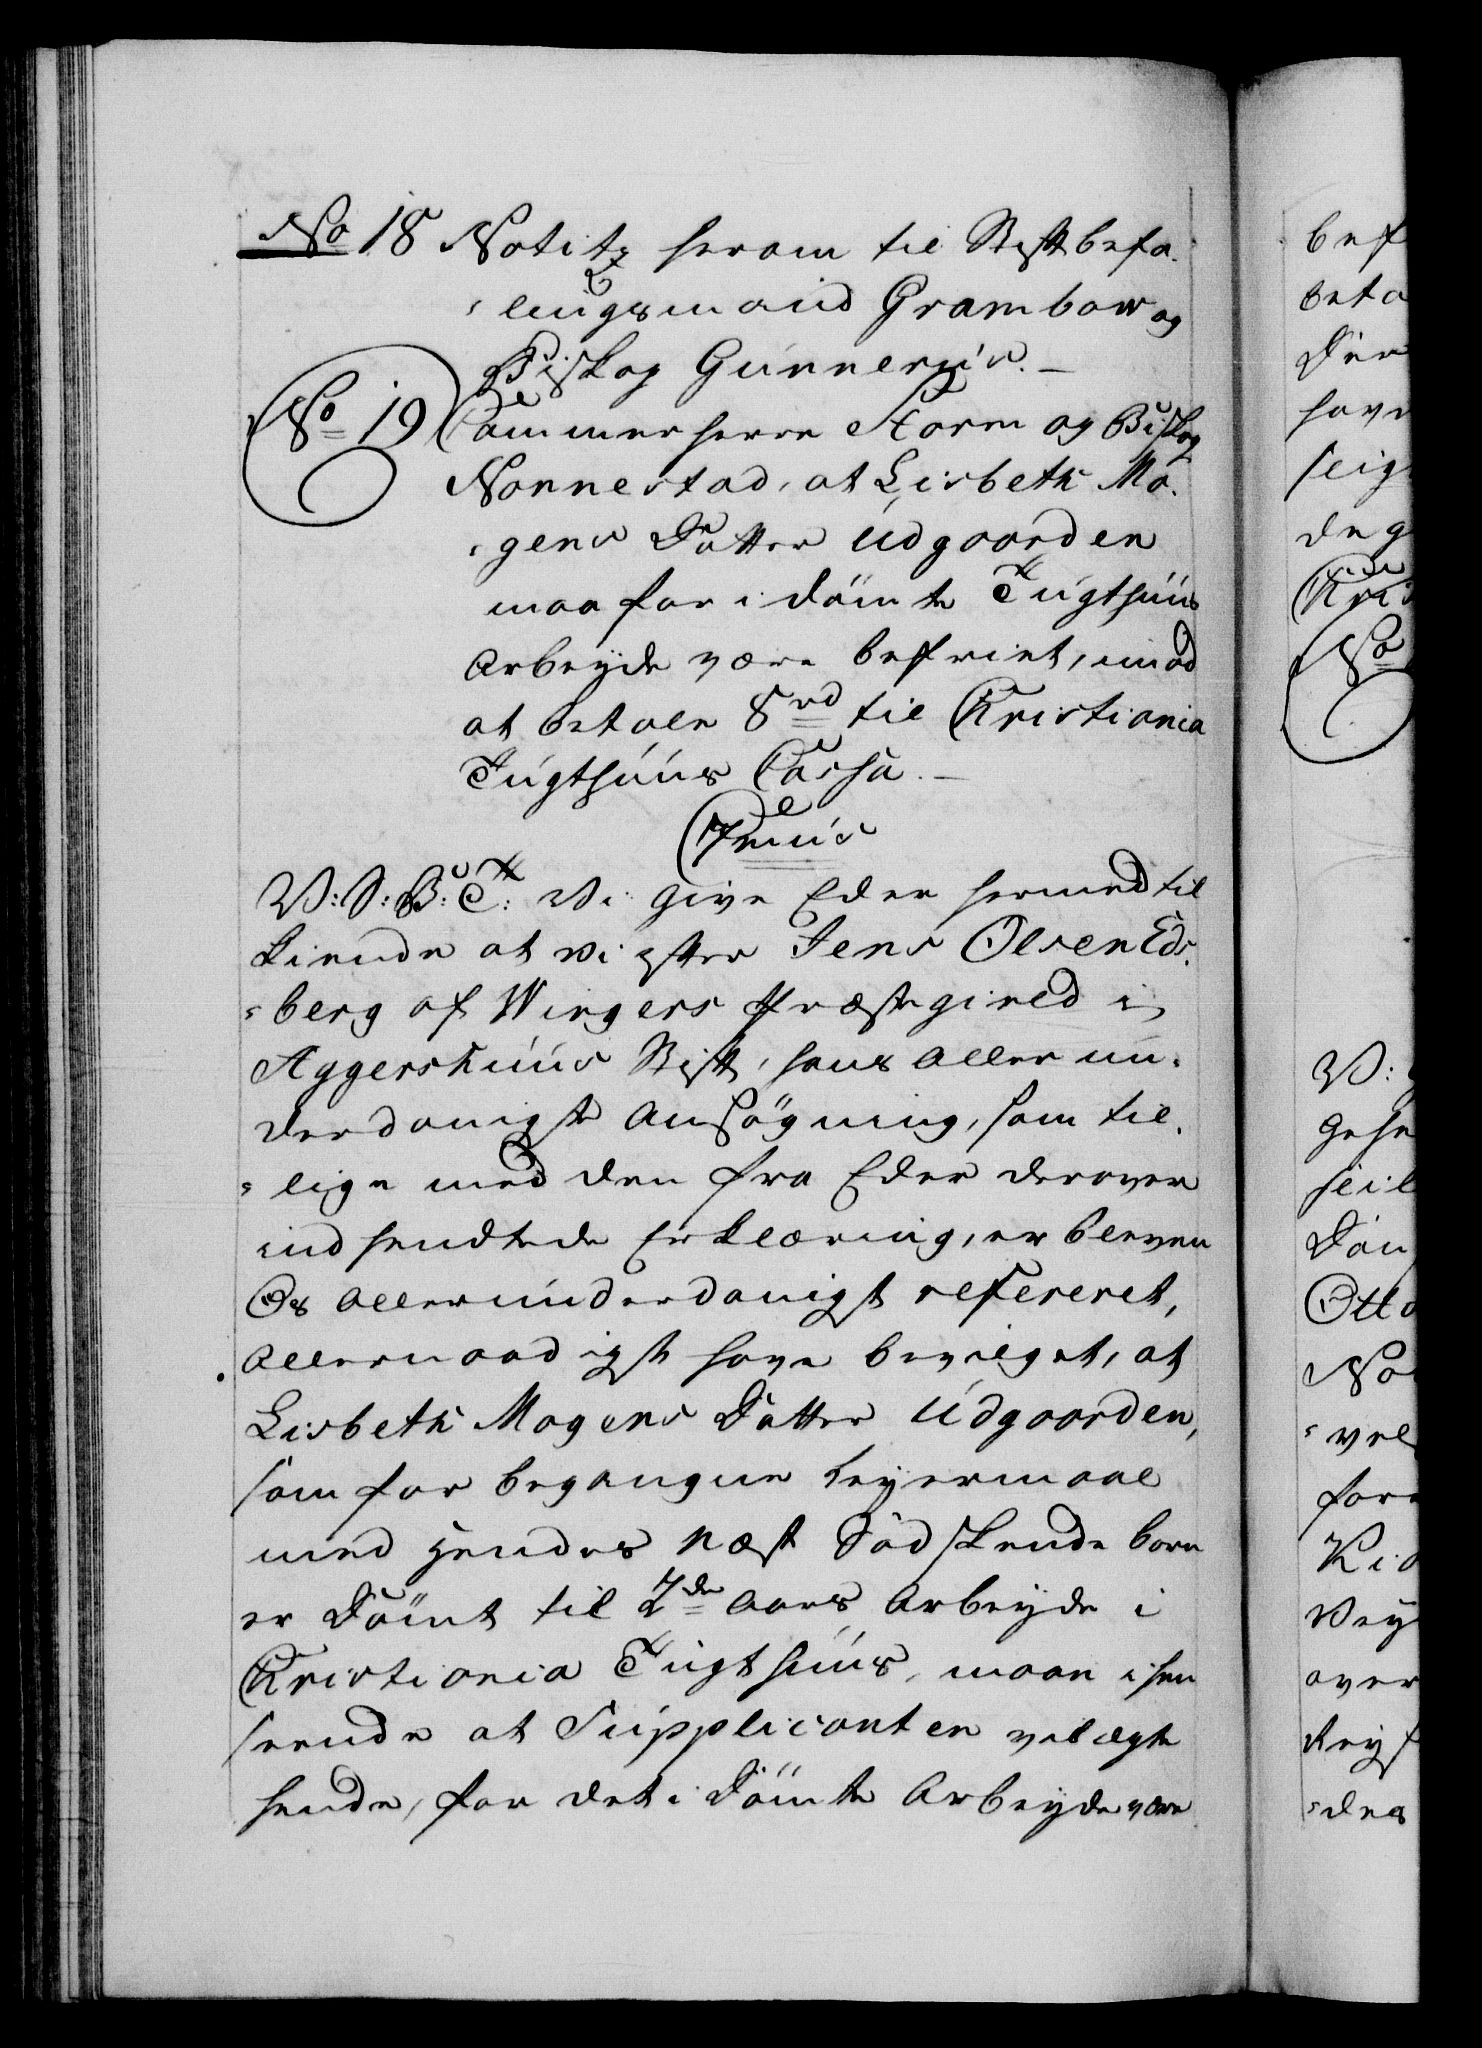 No 18 Notitz herom til Stiftbefa-
lingsmand Grambow og
Biskop Gunnerus. —
No 19 Cammerherre Storm og Biskop
Nannestad, at Lisbeth Mo-
gens Datter Udgaarden
maa for idömte Tugthuus
Arbeyde være befriet, imod
at betale 8 rd til Christiania
Tugthuus Cassa. —
C 7mus
V: S: B: T: Vi give Eder hermed til
kiende at vi efter Jens Olsen Eds-
berg af Wingers Præstegield i
Aggershuus Stift, hans allerun-
derdanigste Ansögning, som til-
lige med den fra Eder derover
indsendtede Erklæring, er bleven
Os allerunderdanigst refereret,
allernaadigst have bevilget, at
Lisbeth Mogens Datter Udgaarden,
som for begangne Leyermaal
med hendes næst Södskende barn
er Dömt til 2de Aars Arbeyde i
Christiania Tugthuus, maae i hen
seende at Supplicanten vil ægte
hende, for det i Dömte Arbeyde være